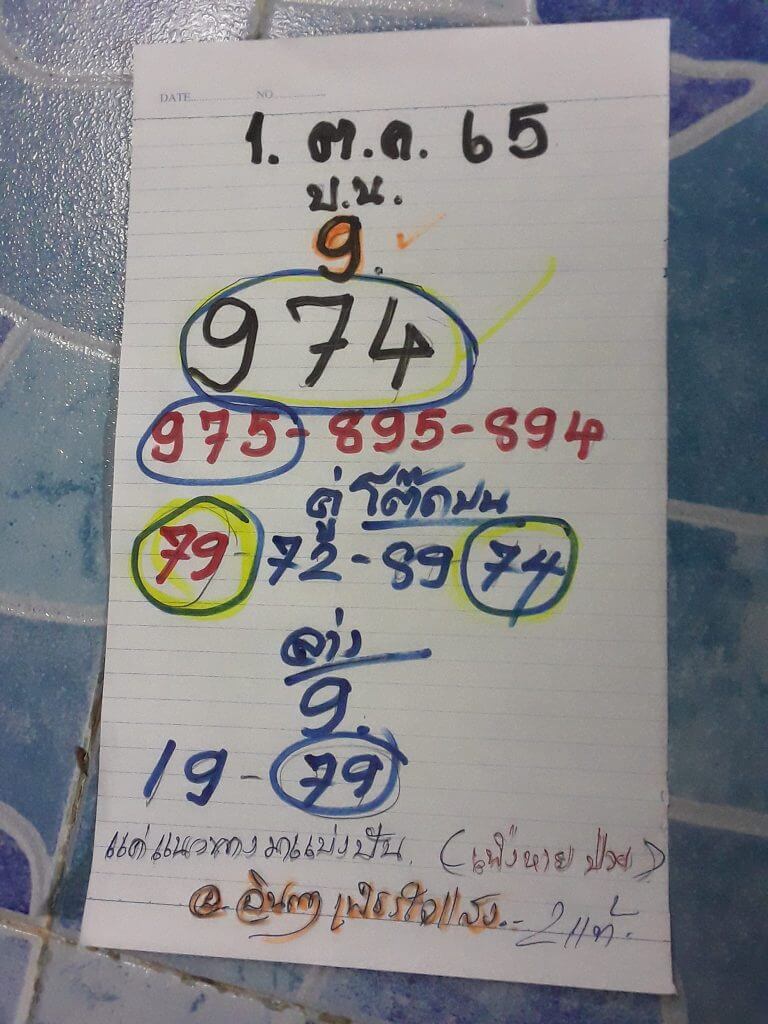 DATE.................. NO..................
1. ต.ค. 65
บ.น.
9.
974
975-895-894
คู่ โต๊ดบน
79-72-89-74
ล่าง
9.
19-79
แค่แนวทางมาแบ่งปัน. (เพิ่งหายป่วย)
2 แท้.